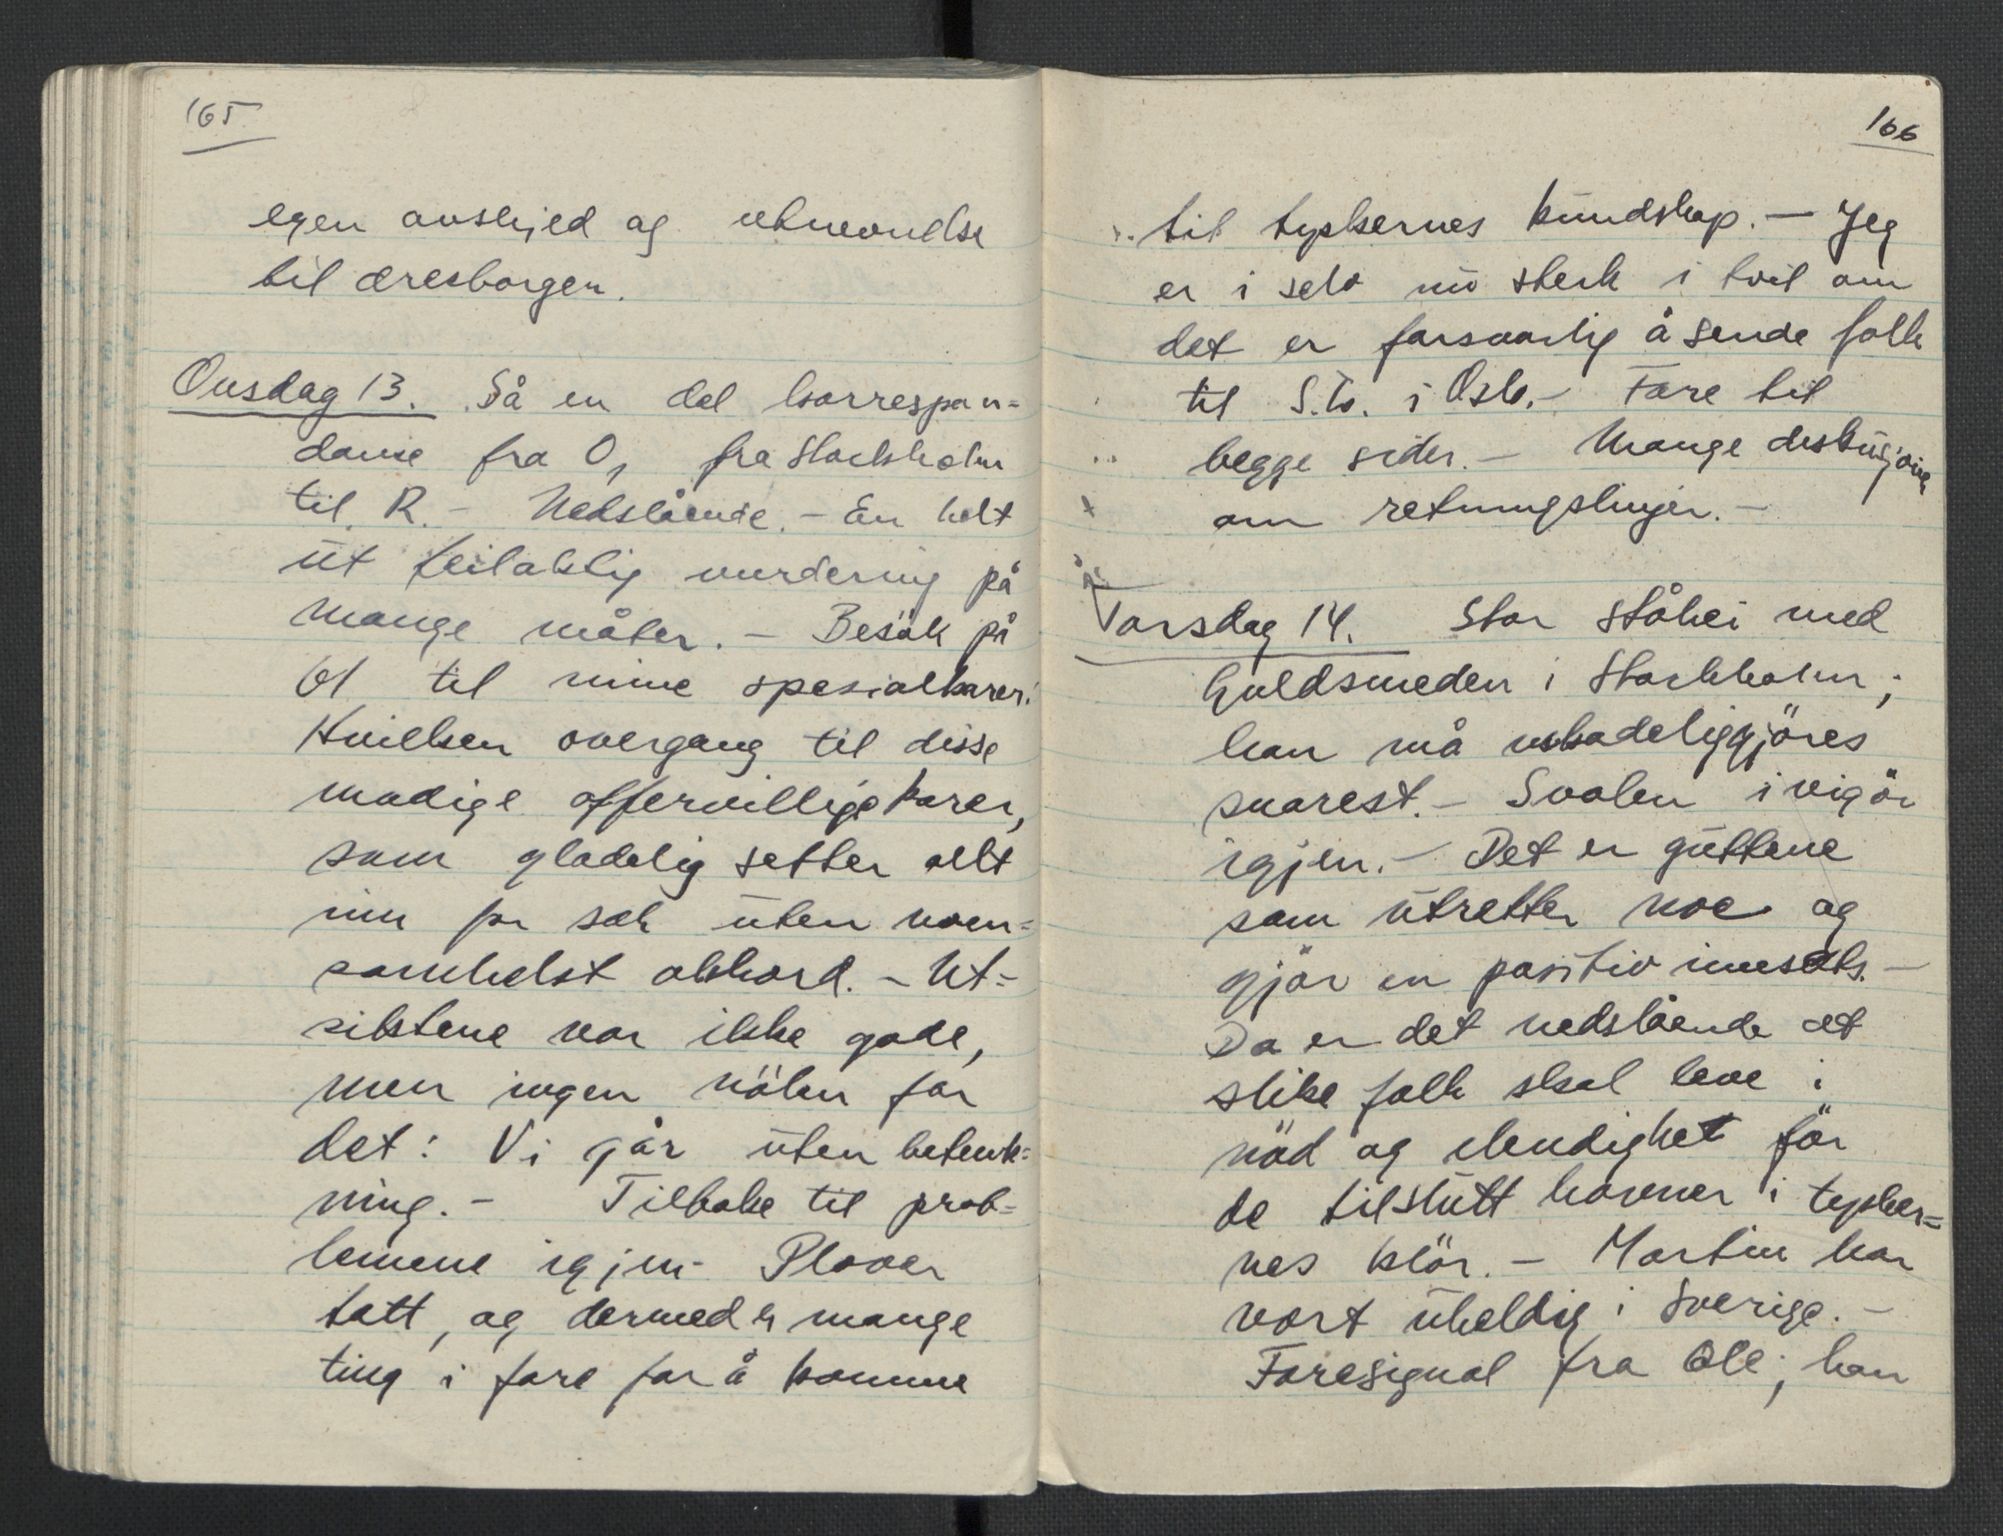 165
egen avskjed og utnevnelse
til æresborger.
Onsdag 13. Så en del korrespon-
danse fra O, fra Stockholm
til R. - Nedslående. - En helt
ut feilaktig vurdering på
mange måter. - Besök på
61 til mine spesialkarer.
Hvilken overgang til disse
modige offervillige karer,
som gladelig setter alt
inn for sak uten noen-
somhelst akkord. - Ut-
siktene var ikke gode,
men ingen nölen for
det: Vi går uten betenk-
ning. - Tilbake til prob-
lemene igjen - Plover
tatt, og dermed er mange
ting i fare for å komme
166
til tyskernes kundskap. - Jeg
er i selv nu sterk i tvil om
det er forsvarlig å sende folk
til S.B. i Oslo. - Fare til
begge sider. - Mange diskusjoner
om retningslinjer. -
Torsdag 14. Stor ståhei med
Guldsmeden i Stockholm;
han må uskadeliggjöres
snarest. - Svolen i vigör
igjen. - Det er guttene
som utretter noe og
gjör en positiv innsats. -
Da er det nedslående at
slike folk skal leve i
nöd og elendighet för
de tilslutt havner i tysker-
nes klör. - Martin har
vært uheldig i Sverige. -
Faresignal fra Ole; han